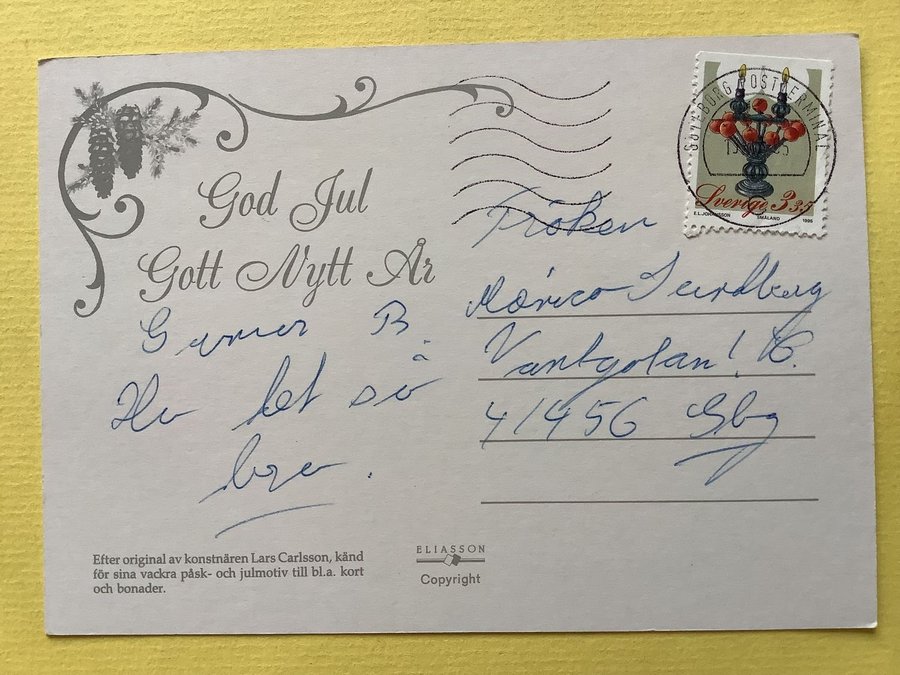 God Jul
Gott Nytt År
Gunnar B.
Ha det så
bra.
GÖTEBORG POSTTERMINAL
Sverige 3.35
E.L. JOHANSSON SMÅLAND 1995
Fröken
Lundberg
41456 Gbg
Efter original av konstnären Lars Carlsson, känd
för sina vackra påsk- och julmotiv till bl.a. kort
och bonader.
ELIASSON
Copyright